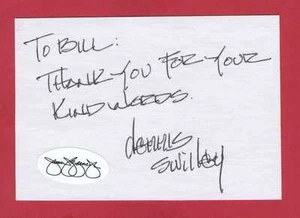 To Bill:
Thank you for your
kind words.
Dennis
Swilley